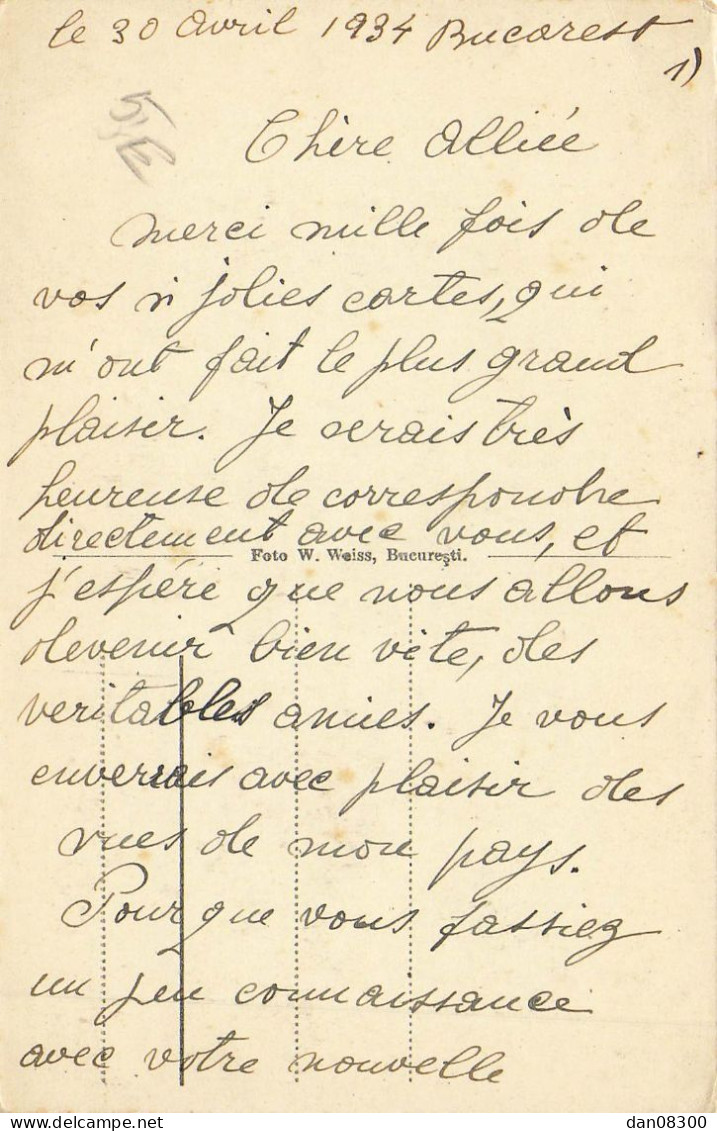 le 30 Avril 1934 Bucarest
1)
Chère Alliée
merci mille fois de
vos si jolies cartes, qui
m'ont fait le plus grand
plaisir. Je serais très
heureuse de correspondre
directement avec vous, et
Foto W. Weiss, București.
j'espère que nous allons
devenir bien vite, des
veritables amies. Je vous
enverrais avec plaisir des
vues de mon pays.
Pour que vous fassiez
un peu connaissance
avec votre nouvelle
dan08300